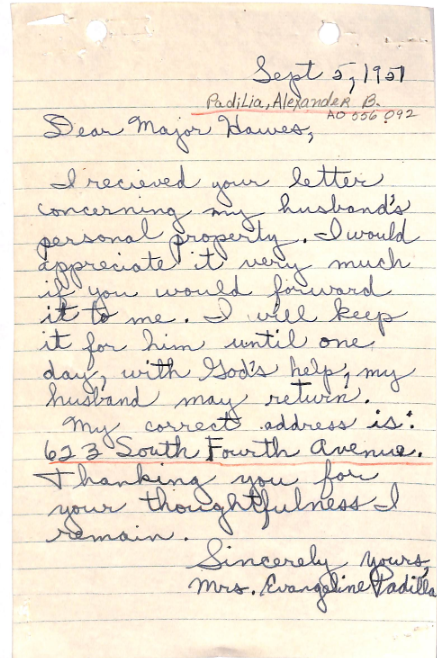 Sept 5, 1951
Padilla, Alexander B.
AO 556 092
Dear Major Hawes,
I recieved your letter
concerning my husband's
personal property. I would
appreciate it very much
if you would forward
it to me. I will keep
it for him until one
day, with God's help, my
husband may return.
My correct address is:
623 South Fourth Avenue.
Thanking you for
your thoughtfulness I
remain.
Sincerely yours,
Mrs. Evangeline Padilla